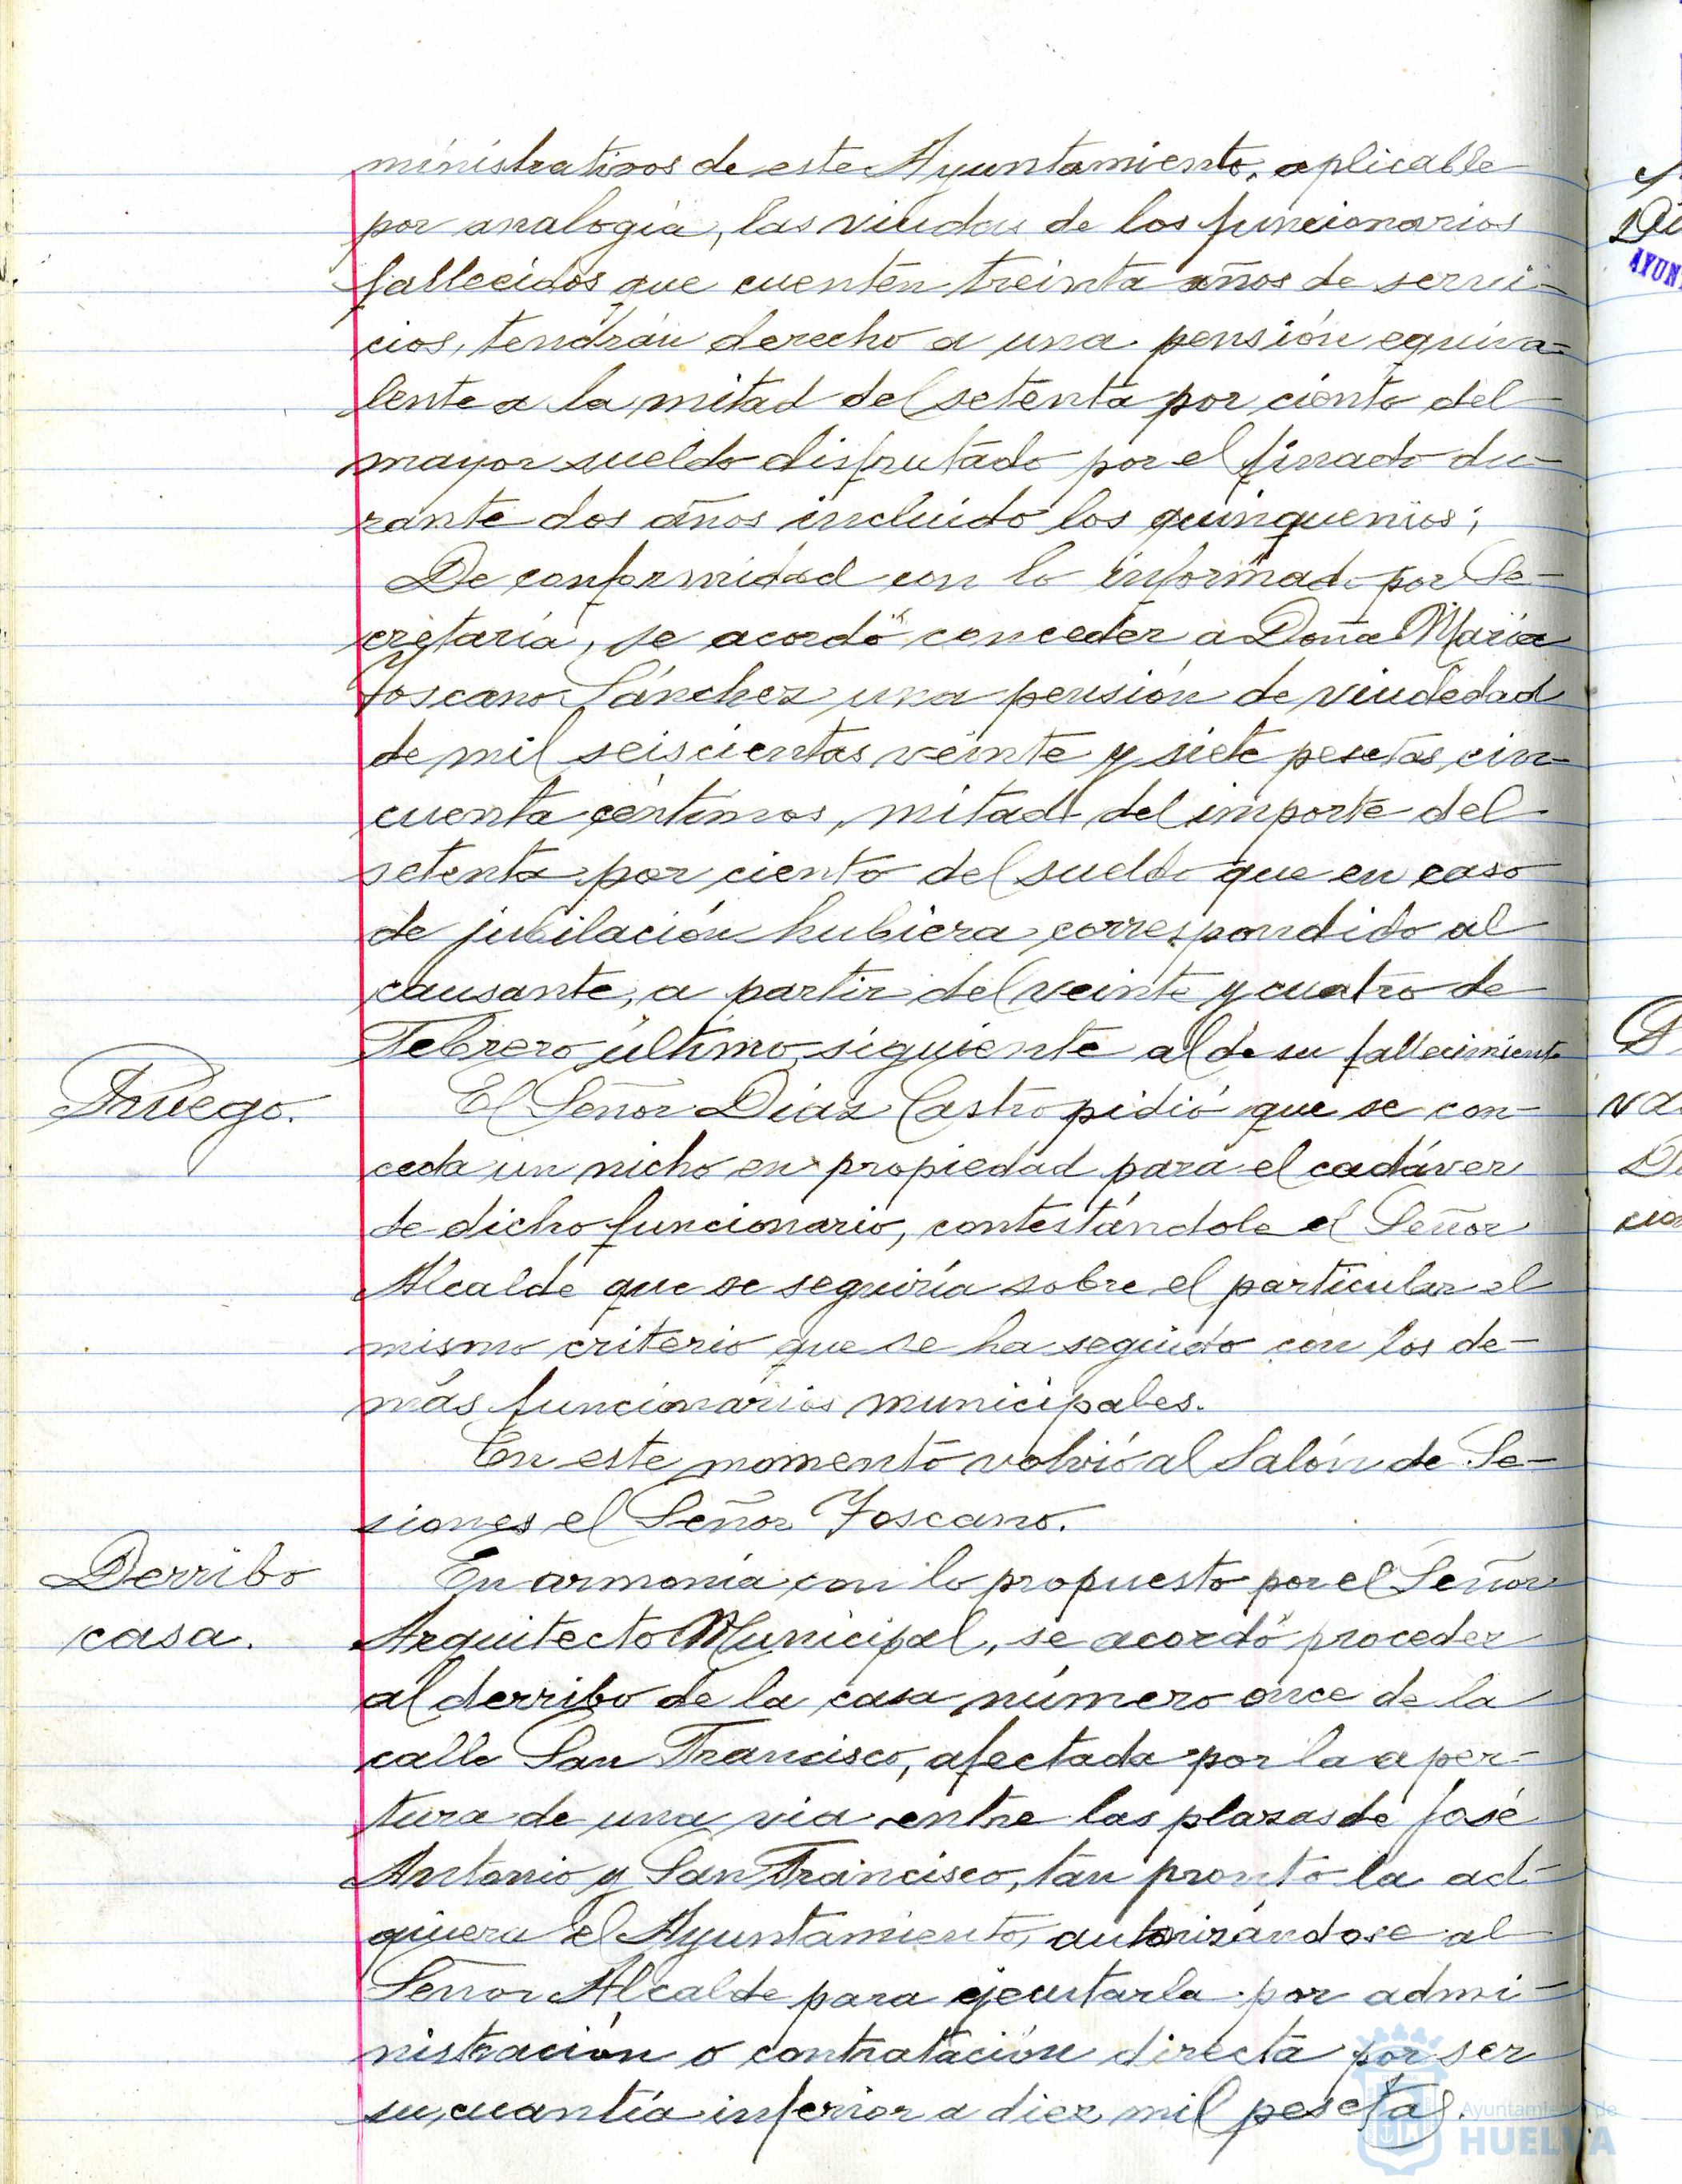 ministrativos de este Ayuntamiento, aplicable
por analogía, las viudas de los funcionarios
fallecidos que cuenten treinta años de servi-
cios, tendrán derecho a una pensión equiva-
lente a la mitad del setenta por ciento del
mayor sueldo disfrutado por el finado du-
rante dos años incluido los quinquenios;
De conformidad con lo informado por Se-
cretaría, se acordó conceder a Doña María
Toscano Sánchez una pensión de viudedad
de mil seiscientas veinte y siete pesetas, cin-
cuenta céntimos, mitad del importe del
setenta por ciento del sueldo que en caso
de jubilación hubiera correspondido al
causante, a partir del veinte y cuatro de
Febrero último, siguiente al de su fallecimiento
Ruego.
El Señor Díaz Castro pidió que se con-
ceda un nicho en propiedad para el cadáver
de dicho funcionario, contestándole el Señor
Alcalde que se seguiría sobre el particular el
mismo criterio que se ha seguido con los de-
más funcionarios municipales.
En este momento volvió al Salón de Se-
siones el Señor Toscano.
Derribo
casa.
En armonía con lo propuesto por el Señor
Arquitecto Municipal, se acordó proceder
al derribo de la casa número once de la
calle San Francisco, afectada por la aper-
tura de una via entre las plazas de José
Antonio y San Francisco, tan pronto la ad-
quiera el Ayuntamiento, autorizándose al
Señor Alcalde para ejecutarla por admi-
nistración o contratación directa por ser
su cuantía inferior a diez mil pesetas.
Ayuntamiento de
HUELVA
AYUN